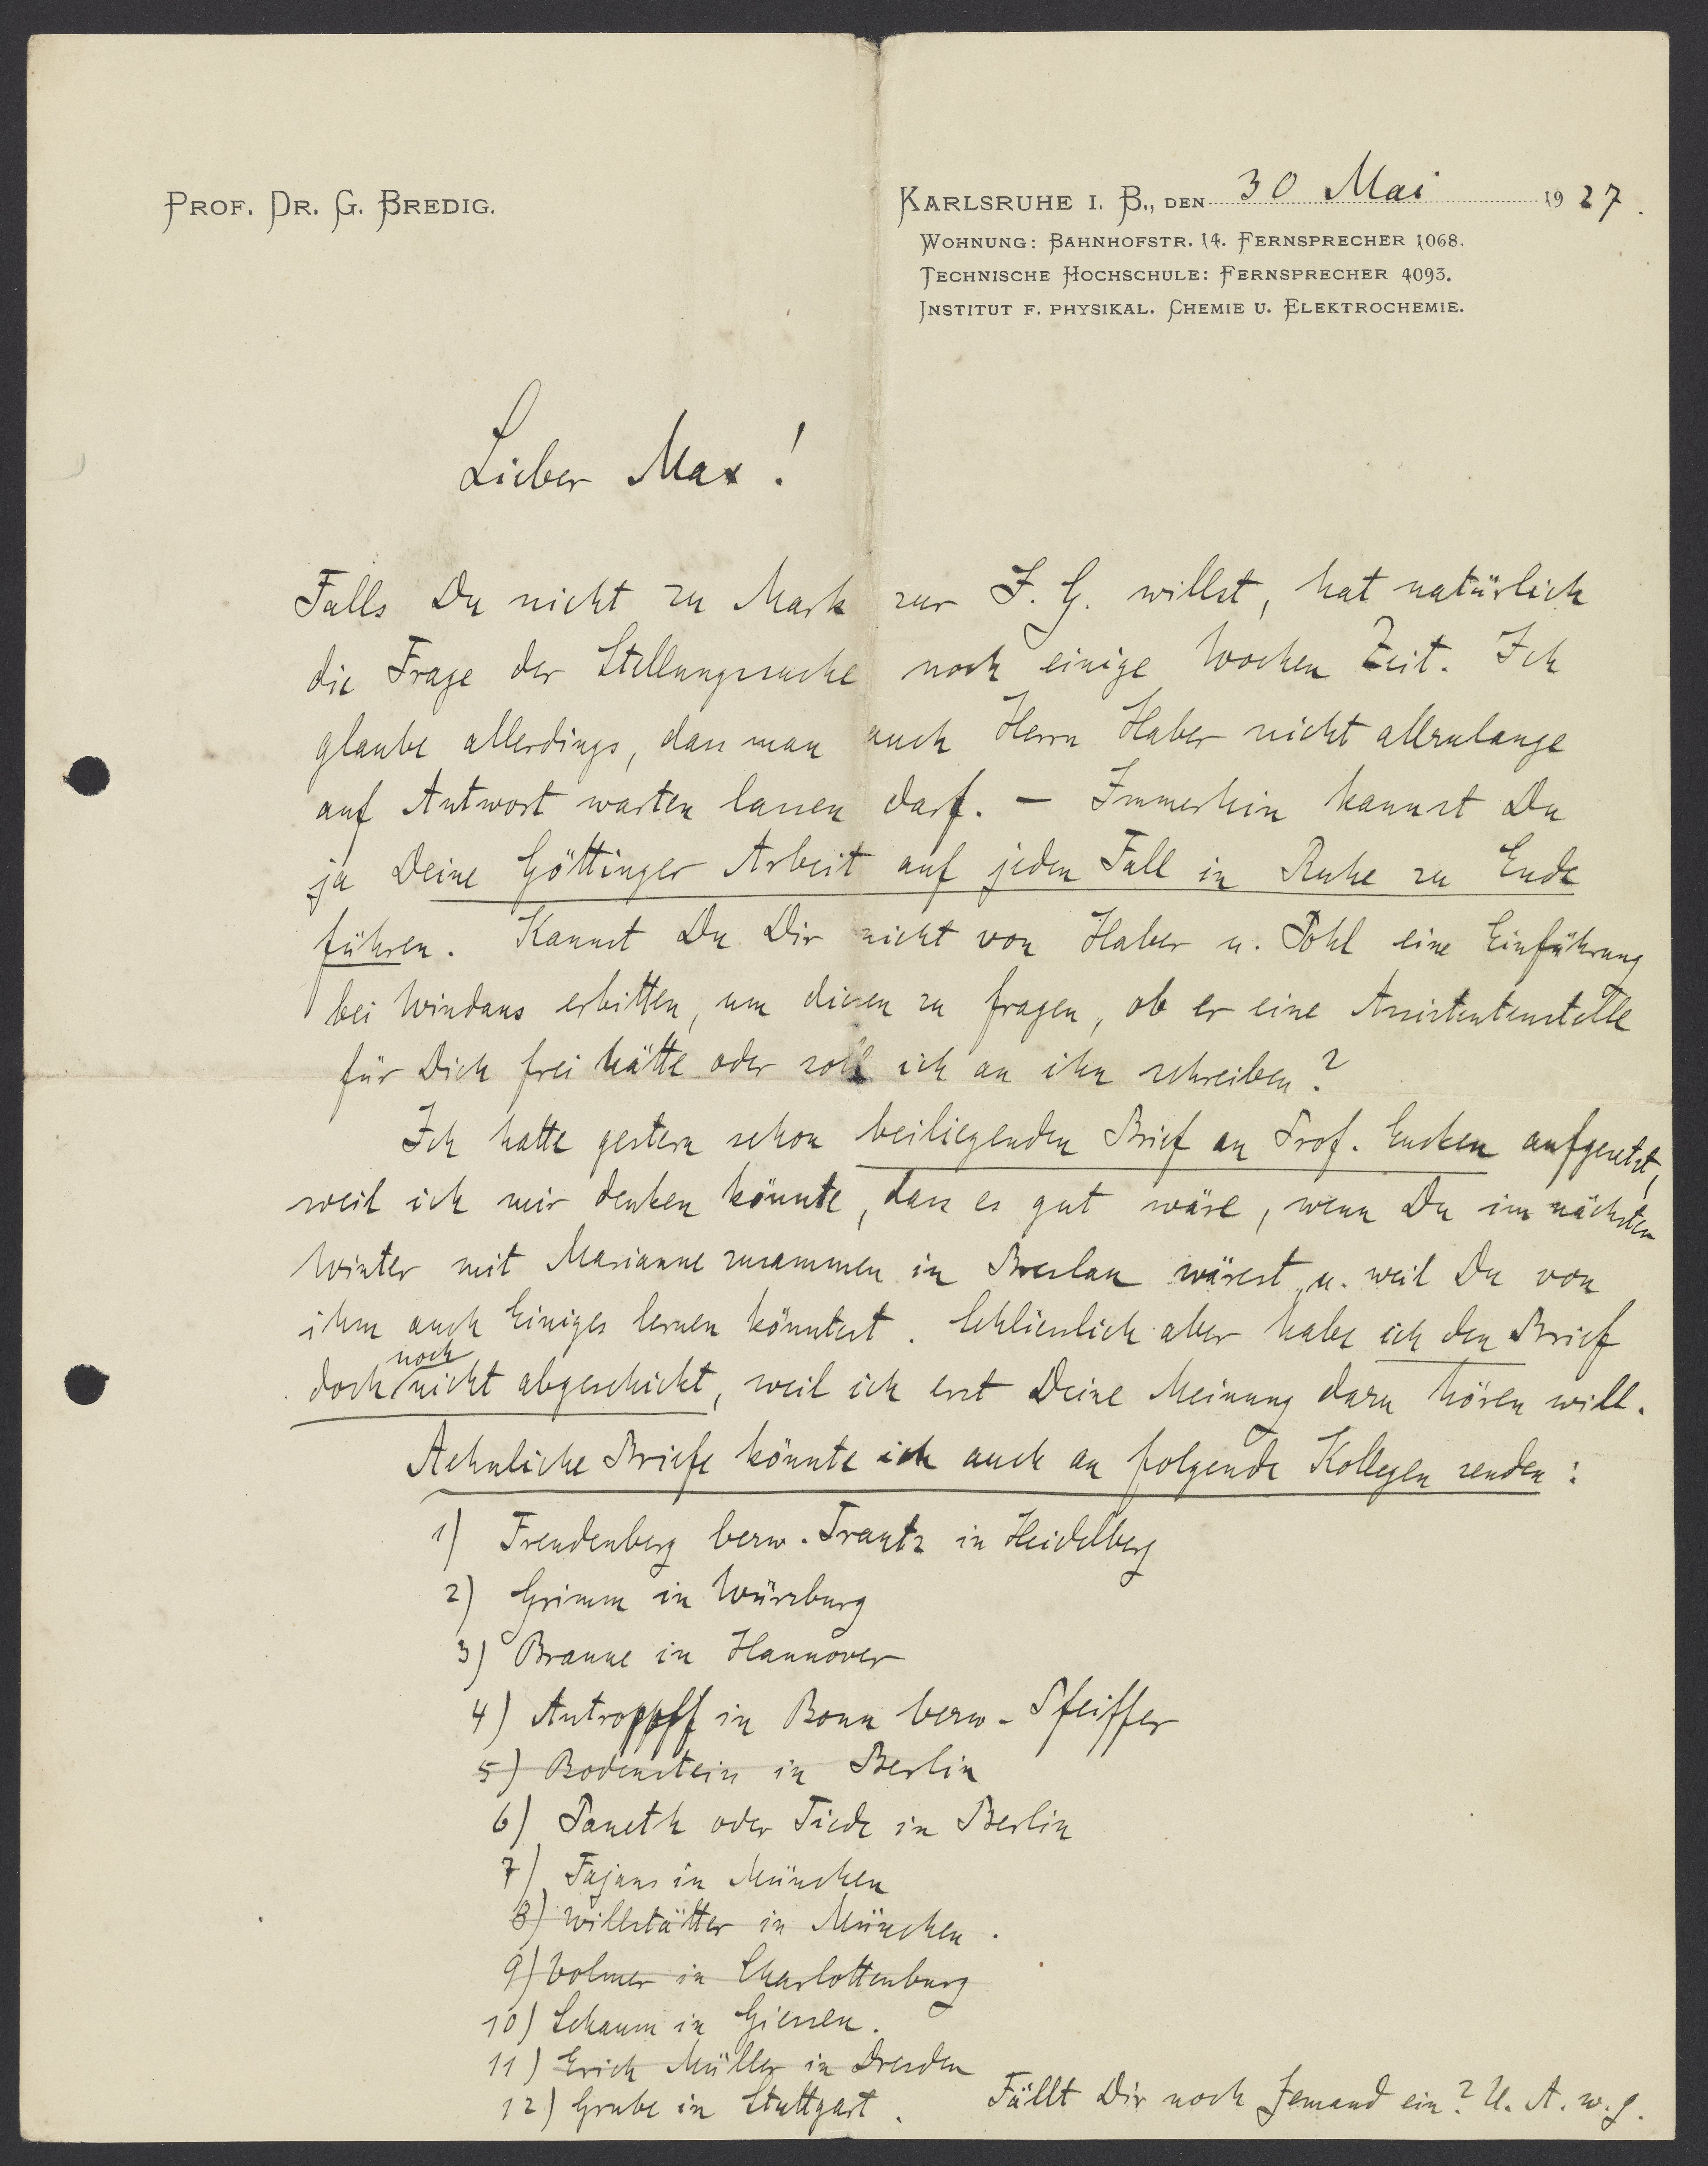 PROF. DR. G. BREDIG.
KARLSRUHE I. B., DEN 30 Mai 1927.
WOHNUNG: BAHNHOFSTR. 14. FERNSPRECHER 1068.
TECHNISCHE HOCHSCHULE: FERNSPRECHER 4093.
INSTITUT F. PHYSIKAL. CHEMIE U. ELEKTROCHEMIE.
Lieber Max!
Falls Du nicht zu Mark zur I. G. willst, hat natürlich
die Frage der Stellungssuche noch einige Wochen Zeit. Ich
glaube allerdings, dass man auch Herrn Haber nicht allzulange
auf Antwort warten lassen darf. – Immerhin kannst Du
ja Deine Göttinger Arbeit auf jeden Fall in Ruhe zu Ende
führen. Kannst Du Dir nicht von Haber u. Pohl eine Einführung
bei Windaus erbitten, um diesen zu fragen, ob er eine Assistentenstelle
für Dich frei hätte oder soll ich an ihn schreiben?
Ich hatte gestern schon beiliegenden Brief an Prof. Eucken aufgesetzt,
weil ich mir denken könnte, dass es gut wäre, wenn Du im nächsten
Winter mit Marianne zusammen in Breslau wärest u. weil Du von
ihm auch Einiges lernen könntest. Schliesslich aber habe ich den Brief
doch noch nicht abgeschickt, weil ich erst Deine Meinung dazu hören will.
Aehnliche Briefe könnte ich auch an folgende Kollegen senden:
1) Freudenberg bezw. Trautz in Heidelberg
2) Grimm in Würzburg
3) Braune in Hannover
4) Antropoff in Bonn bezw. Pfeiffer
5) Bodenstein in Berlin
6) Paneth oder Tiede in Berlin
7) Fajans in München
8) Willstätter in München.
9) Volmer in Charlottenburg
10) Schaum in Giessen.
11) Erich Müller in Dresden
12) Grube in Stuttgart. Fällt Dir noch Jemand ein? U. A. w. g.